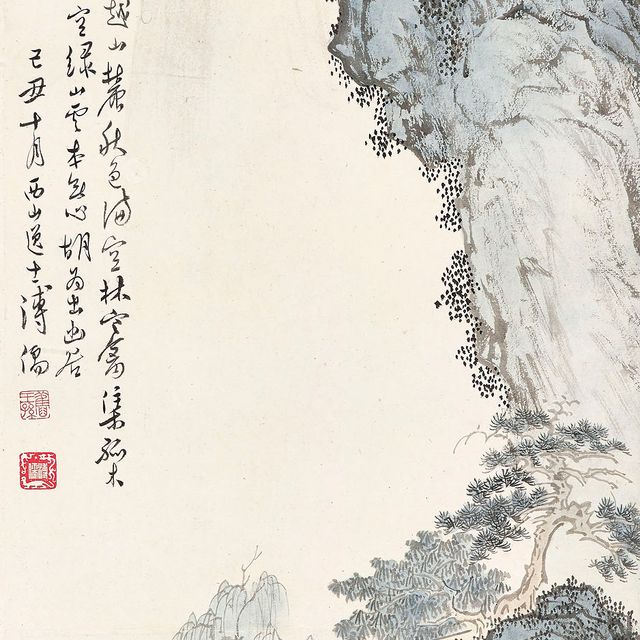 越山麓秋色滿空林寒禽集孤木
空綠山雲本無心胡為出幽谷
己丑十月西山逸士溥儒
舊王孫